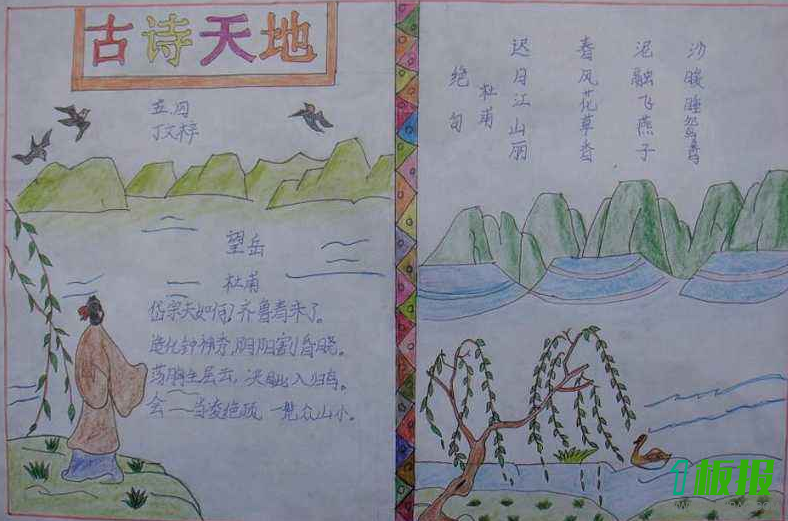 古诗天地
五.四
丁文梓
望岳
杜甫
岱宗夫如何?齐鲁青未了。
造化钟神秀,阴阳割昏晓。
荡胸生层云,决眦入归鸟。
会当凌绝顶,一览众山小。
绝句
杜甫
迟日江山丽
春风花草香
泥融飞燕子
沙暖睡鸳鸯
板报